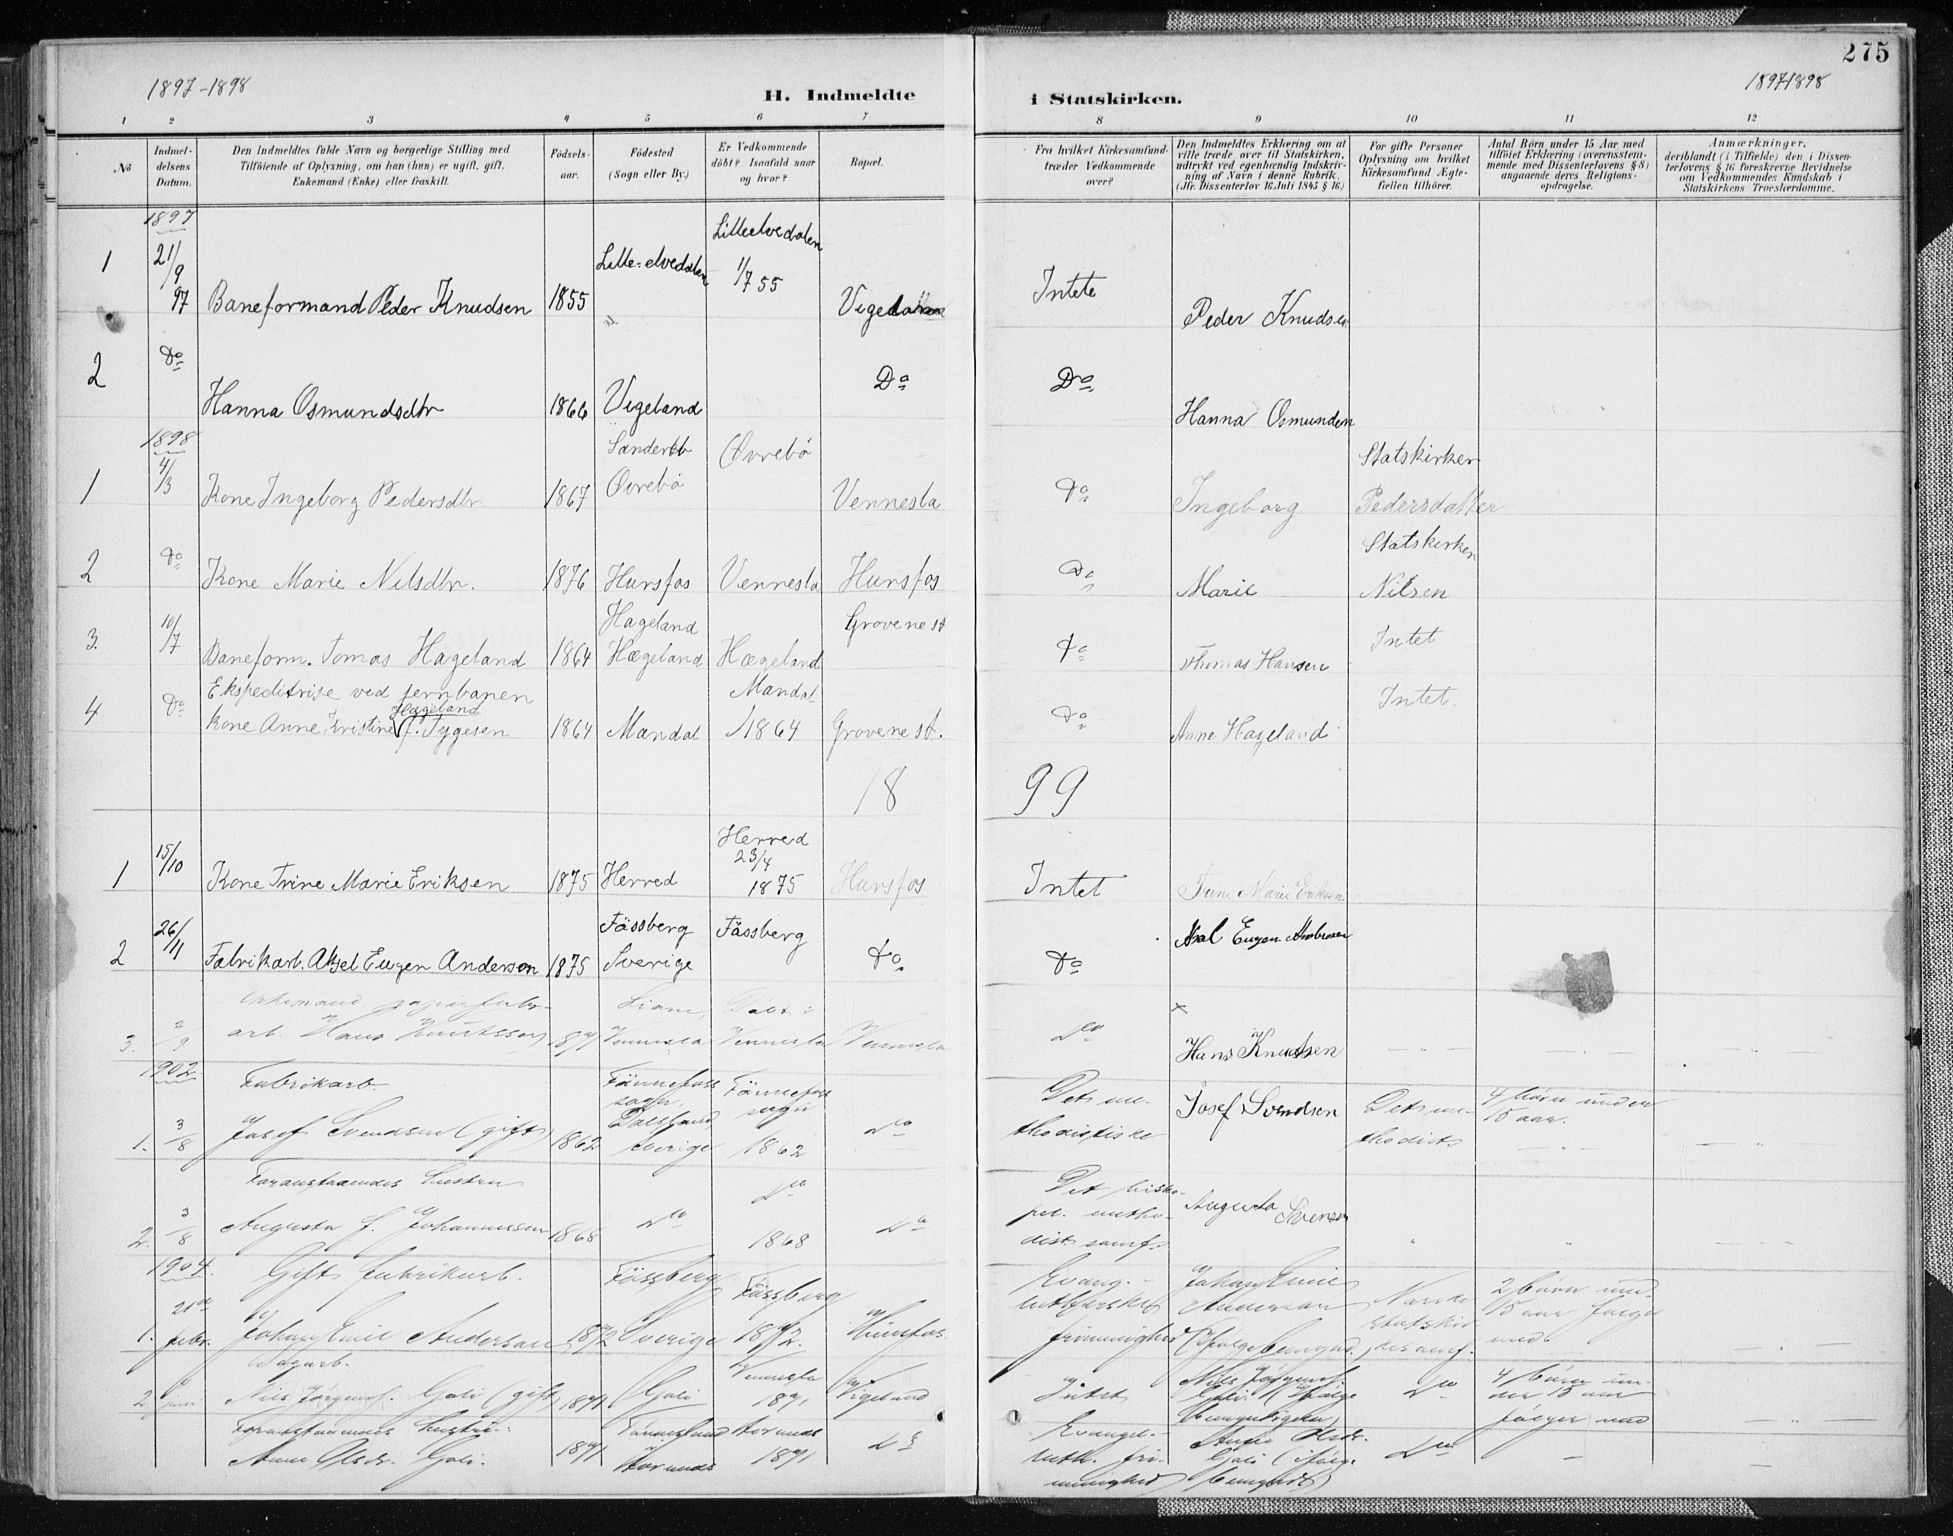 275
1897-1898
1897-1898
H. Indmeldte i Statskirken.
1 2 3 4 5 6 7 8 9 10 11 12
No
Indmel-
delsens
Datum.
Den Indmeldtes fulde Navn og borgerlige Stilling med
Tilföiende af Oplysning, om han (hun) er ugift, gift,
Enkemand (Enke) eller fraskilt.
Födsels-
aar.
Födested
(Sogn eller By.)
Er Vedkommende
döbt? Isaafald naar
og hvor?
Bopæl.
Fra hvilket Kirkesamfund
træder Vedkommende
over?
Den Indmeldtes Erklæring om at
ville træde over til Statskirken,
udtrykt ved egenhændig Indskriv-
ning af Navn i denne Rubrik.
(Jfr. Dissenterlov 16 Juli 1845 § 16)
For gifte Personer
Oplysning om hvilket
Kirkesamfund Ægte-
fællen tilhører.
Antal Börn under 15 Aar med
tilföiet Erklæring (overensstem-
mende med Dissenterlovens § 8)
angaaende deres Religions-
opdragelse.
Anmærkninger,
deriblandt (i Tilfælde) den i Dissen-
terlovens § 16 foreskrevne Bevidnelse
om Vedkommendes Kundskab i
Statskirkens Troeslærdomme.
1897
1 21/9 97 Baneformand Peder Knudsen 1855 Lille-elvedalen Lilleelvedalen 1/7 55 Intet Peder Knudsen
2 Do Hanna Osmundsdtr 1866 Vigeland Do Do Hanna Osmunden
1898
1 4/3 Kone Ingeborg Pedersdtr 1867 Øvrebö Øvrebö Vennesla Do Ingeborg Pedersdatter Statskirken
2 Do Kone Marie Nilsdtr. 1876 Hunsfos Vennesla Hunsfos Do Marie Nilsen Statskirken
3. 10/7 Baneform. Tomas Hageland 1864 Hageland Hægeland Hægeland Grovene st Do Thomas Hansen Intet
Ekspeditrise ved jernbanen
4 Do Kone Anne Kristine Hageland f. Tygesen 1864 Mandal Mandal 1864 Grovene st. Do Anne Hageland Intet
1899
1 15/10 Kone Trine Marie Eriksen 1875 Herred Herred 23/4 1875 Hunsfos Intet Trine Marie Eriksen
2 26/11 Fabrikarb. Aksel Eugen Anderson 1875 Fässberg Sverige Fässberg Do Do Axel Eugen
Enkemand, papirfabr-
3. arb. Hans Knutsson Vennesla Vennesla Vennesla Do x Hans Knutsen
1902
Fabrikarb.
1. 3/8 Josef Svendsen (gift) 1862 Dalsland Sverige 1862 Do Det me-
thodistiske Josef Svendsen Det me-
thodist 4 börn under
15 aar.
Foranstaaendes hustru
2. 3/8 Augusta f. Johannessen 1868 Do Do 1868 Do Det bisko-
pel. metho-
dist samf. Augusta Svensen
1904.
Gift fabrikarb.
1. 21de febr. Johan Emil Anderson 1872 Fässberg Sverige Fässberg 1872. Hunsfos Evang.-
lutherske
frimenighed Johan Emil
Anderson Norske
statskir-
kesamf. 2 börn und.
15 aar følger
med.
Dagarb.
2 juni Nils Jörgens. Goli (gift) 1871 Goli Vennesla 1871 Vigeland Intet Nils Jörgens. Goli Do 4 börn un-
der 15 aar
følger med
Foranstaaendes hustru:
Anne Olsdr. Goli. 1871 1871 Do Evangel.
luth. fri-
menighed Anne Olsdr.
Goli Do